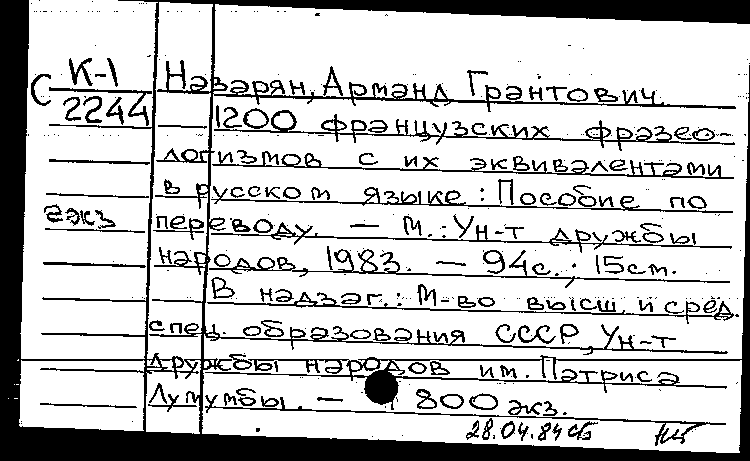 К-1
С 2244
2экз
Назарян, Арманд Грантович.
1200 французских фразео-
логизмов с их эквивалентами
в русском языке : Пособие по
переводу. — М. : Ун-т дружбы
народов, 1983. — 94с.; 15см.
В надзаг.: М-во высш. и сред.
спец. образования СССР, Ун-т
дружбы народов им. Патриса
Лумумбы. — 800 экз.
28.04.84